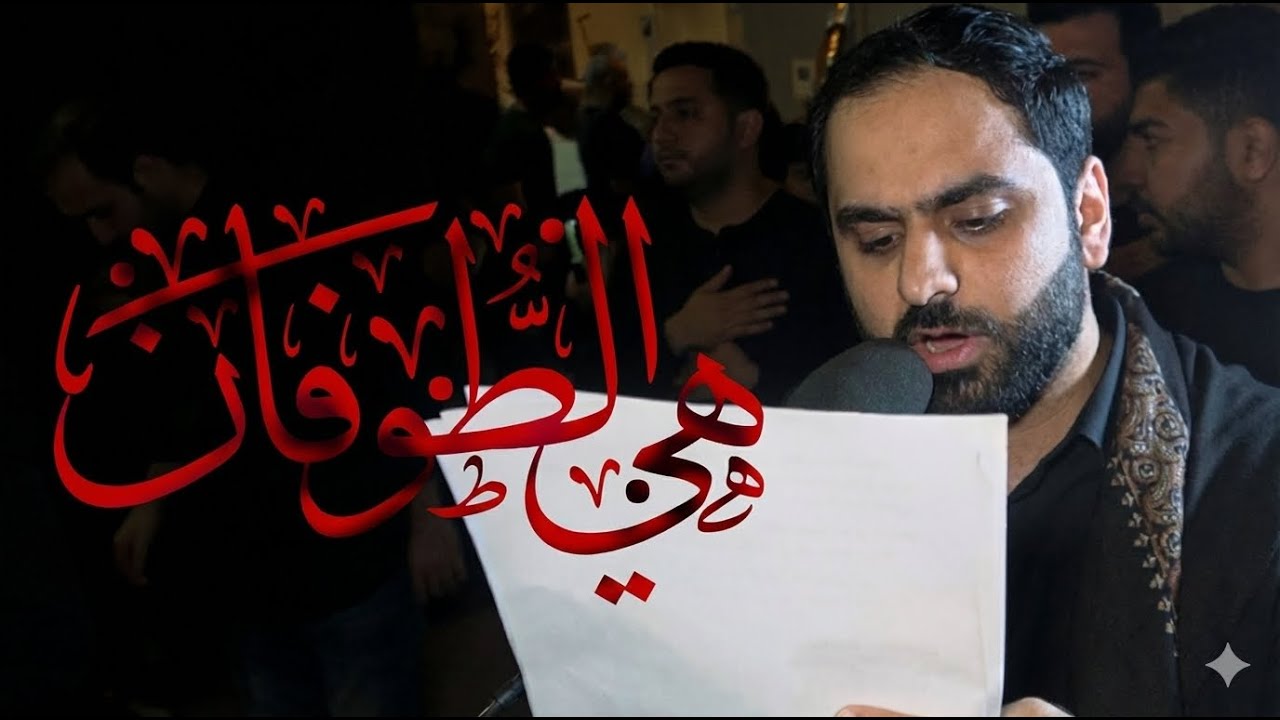 هي الطُّوفان